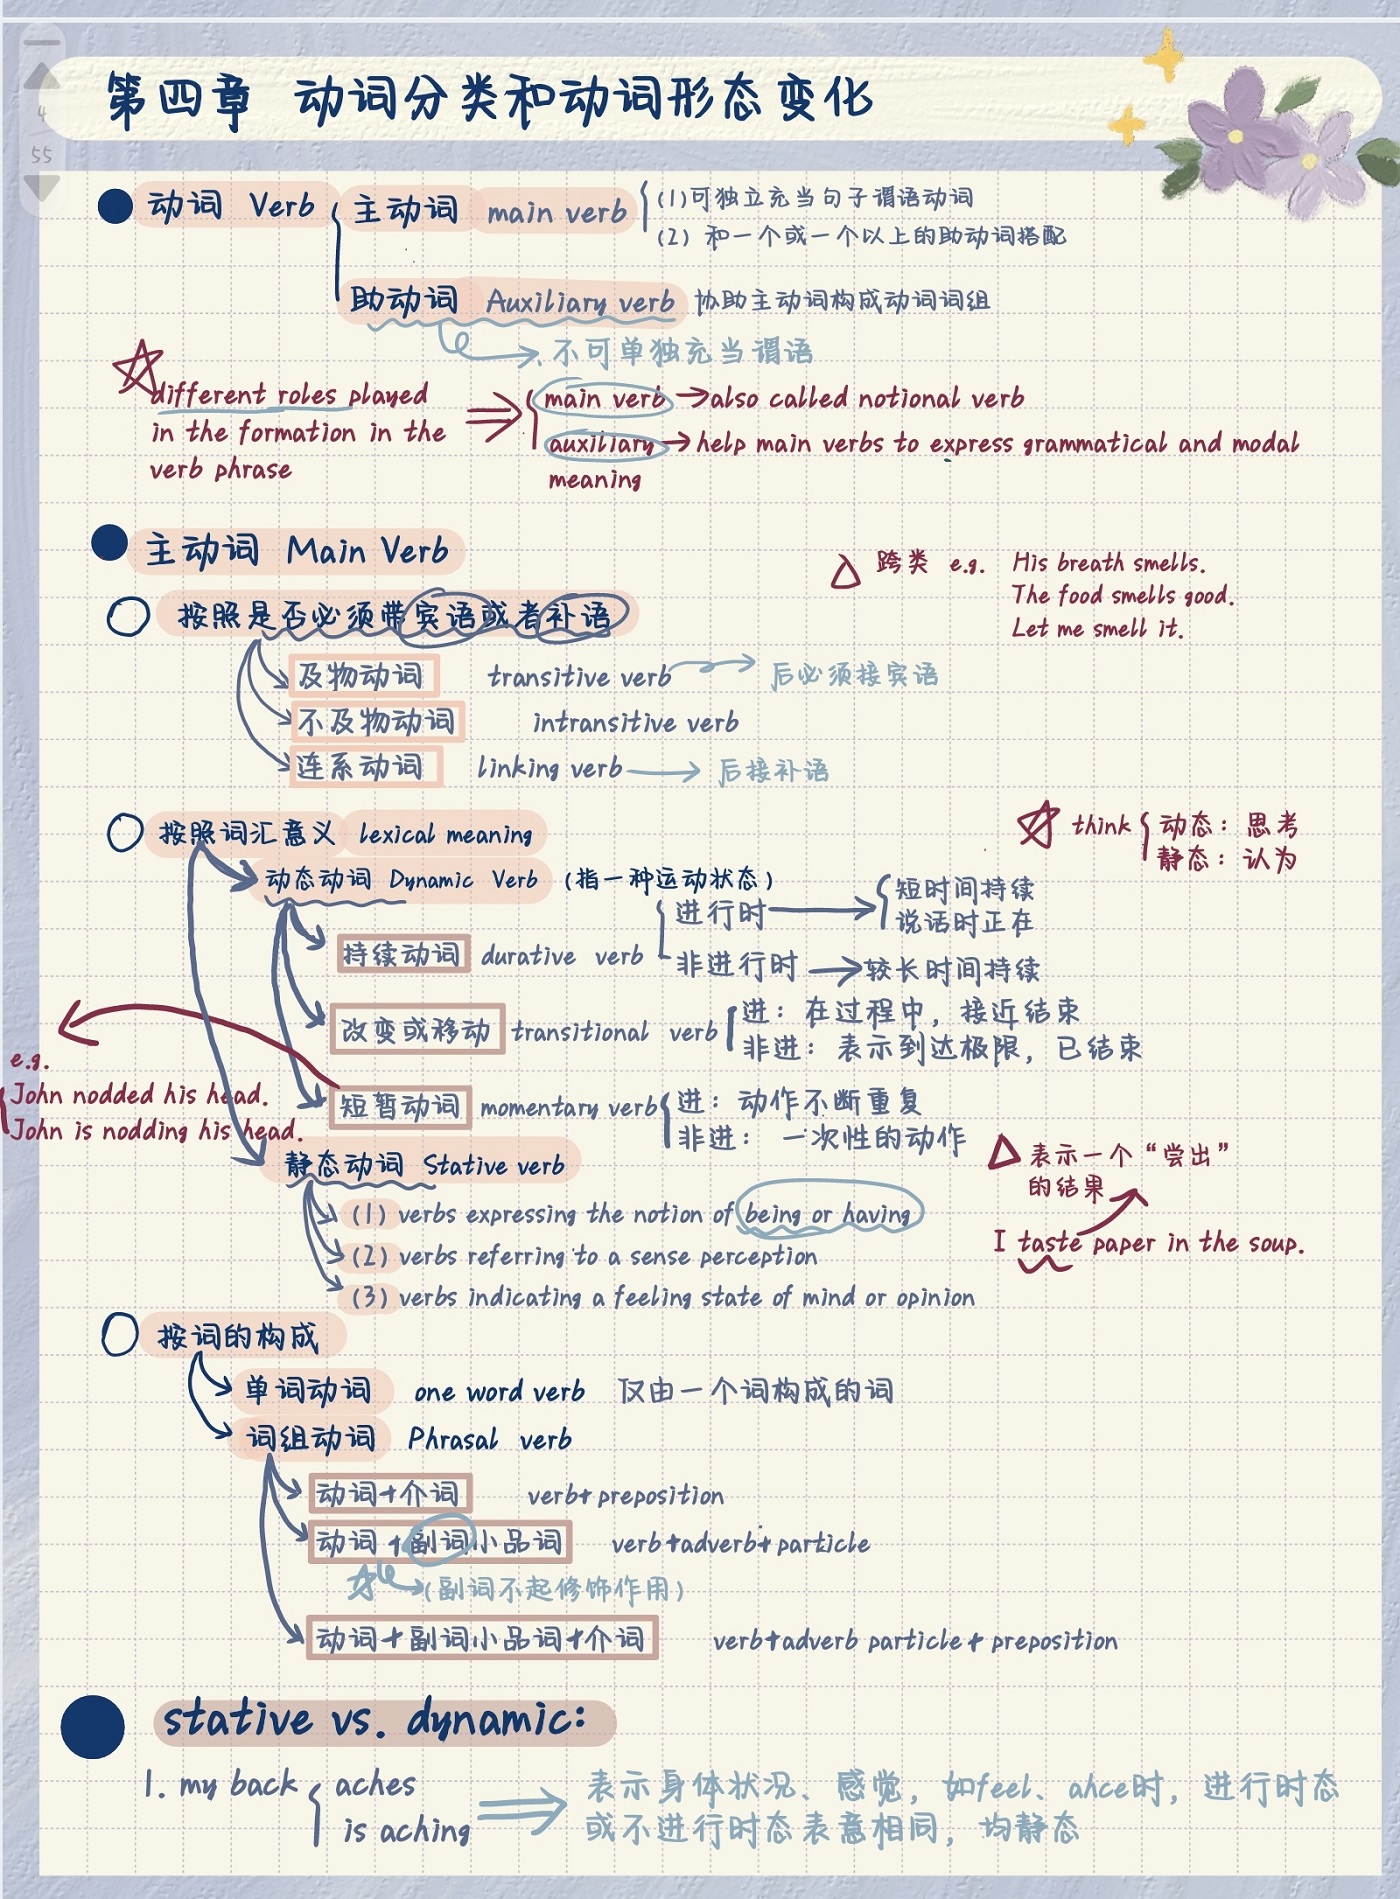 第四章 动词分类和动词形态变化
4
55
动词 Verb
主动词 main verb
(1)可独立充当句子谓语动词
(2) 和一个或一个以上的助动词搭配
助动词 Auxiliary verb 协助主动词构成动词词组
不可单独充当谓语
different roles played
in the formation in the
verb phrase
main verb → also called notional verb
auxiliary → help main verbs to express grammatical and modal
meaning
主动词 Main Verb
跨类 e.g. His breath smells.
The food smells good.
Let me smell it.
按照是否必须带宾语或者补语
及物动词 transitive verb → 后必须接宾语
不及物动词 intransitive verb
连系动词 linking verb → 后接补语
按照词汇意义 lexical meaning
think
动态: 思考
静态: 认为
动态动词 Dynamic Verb (指一种运动状态)
持续动词 durative verb
进行时 →
短时间持续
说话时正在
非进行时 → 较长时间持续
改变或移动 transitional verb
进: 在过程中, 接近结束
非进: 表示到达极限, 已结束
e.g.
John nodded his head.
John is nodding his head.
短暂动词 momentary verb
进: 动作不断重复
非进: 一次性的动作
静态动词 Stative verb
(1) verbs expressing the notion of being or having
(2) verbs referring to a sense perception
(3) verbs indicating a feeling state of mind or opinion
表示一个“尝出”
的结果
I taste paper in the soup.
按词的构成
单词动词 one word verb 仅由一个词构成的词
词组动词 Phrasal verb
动词+介词 verb+ preposition
动词+副词小品词 verb+adverb+ particle
(副词不起修饰作用)
动词+副词小品词+介词 verb+adverb particle+ preposition
stative vs. dynamic:
1. my back
aches
is aching
表示身体状况、感觉, 如feel、ahce时, 进行时态
或不进行时态表意相同, 均静态